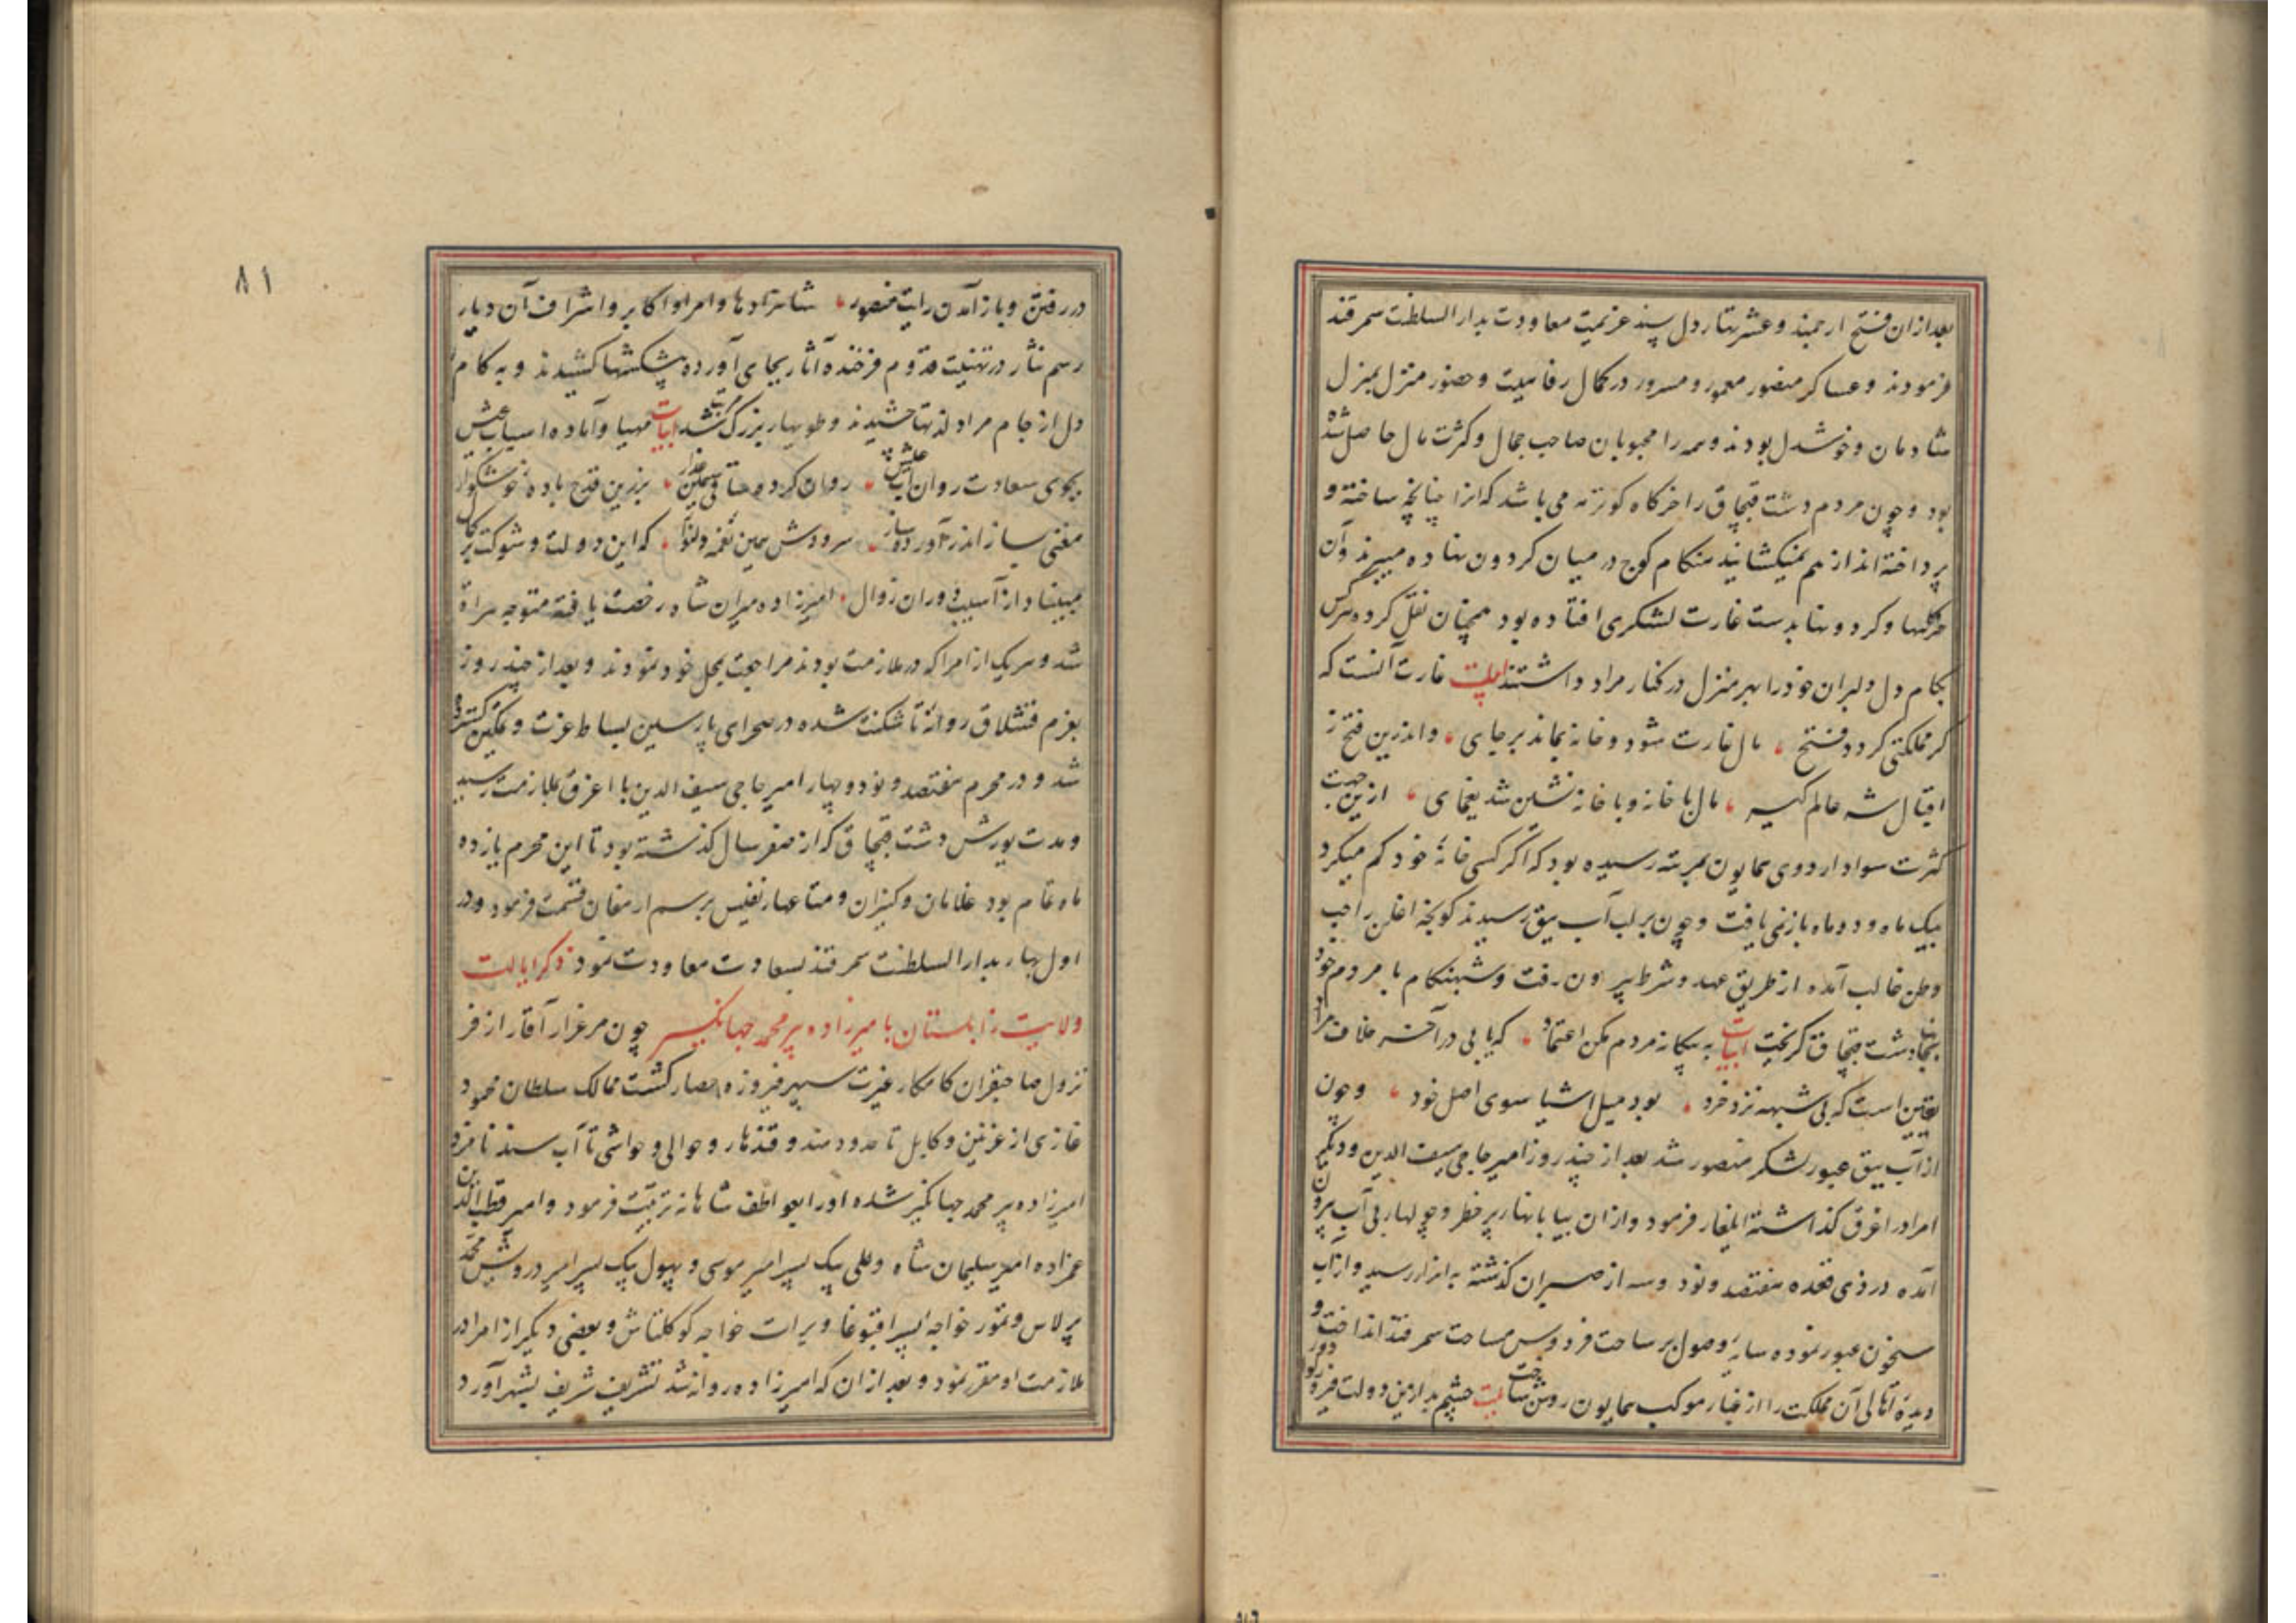 بعد ازان فتح ارجمند و عشرتهاء دل پسند عزیمت معاودت بدار السلطنت سمرقند
فرمودند و عساکر منصور معمور و مسرور در کمال رفاهیت و حضور منزل بمنزل
شادمان و خوشدل بودند و همه را محبوبان صاحب جمال و کثرت مال حاصل شده
بود و چون مردم دشت قبچاق را خرگاه کوترمه می باشد که انرا چنانچه ساخته و
پرداخته اند از هم نمیکشایند هنکام کوچ در میان کردون نهاده میبرند و آن
خرکهها و کردونها بدست غارت لشکری افتاده بود همچنان نقل کرده هرکس
بکام دل دلبران خود را بهر منزل در کنار مراد داشتند ابیات غارت آنست که
کر مملکتی کردد فتح مال غارت شود و خانه بماند برجای و اندرین فتح ز
اقبال شه عالم کیر مال با خانه و با خانه نشین شد یغمای ازین جهت
کثرت سواد اردوی همایون بمرتبه رسیده بود که اکر کسی خانهٔ خود کم میکرد
بیک ماه و دو ماه باز نمی یافت و چون بر لب آب ییق رسیدند کونجه اغلن را حب
وطن غالب آمده از طریق عهد و شرط بیرون رفت و شبهنکام با مردم خود
بجانب دشت قبچاق کریخت ابیات به بیکانه مردم مکن اعتماد که یابی در آخر خلاف مراد
یقین است که بی شبهه نزد خرد بود میل اشیا سوی اصل خود و چون
از آب ییق عبور لشکر منصور شد بعد از چند روز امیر حاجی سیف الدین و دیکر
امرا در اغرق کذاشته ایلغار فرمود و ازان بیابانهاء پر خطر و چولهاء بی آب بیرون
آمده در ذی قعده هفتصد و نود و سه از صبران کذشته به اترار رسید و از آب
سیحون عبور نموده سایهٔ وصول بر ساحت فردوس مساحت سمرقند انداخت و
دیدهٔ اهالی آن مملکت را از غبار موکب همایون روشن ساخت بیت چشم بد ازین دولت فیروز دور
در رفتن و باز آمدن رایت منصور شاهزادها و امرا و اکابر و اشراف آن دیار
رسم نثار در تهنیت قدوم فرخنده آثار بجای آورده پیشکشها کشیدند و به کام
دل از جام مراد لذتها چشیدند و طویهاء بزرک مرتب شد ابیات مهیا و آماده اسباب عیش
بجوی سعادت روان آب عیش روان کرده ساقی سیمین عذار بزرین قدح بادهٔ خوشکوار
مغنی بساز اندر آورده ساز سرودش همین نغمه دلنواز که این دولت و شوکت بر کمال
مبیناد از آسیب دوران زوال امیرزاده میران شاه رخصت یافته متوجه هراة
شد و هر یک از امرا که در ملازمت بودند مراجعت بمحل خود نمودند و بعد از چند روز
بعزم قشلاق روانهٔ تاشکنت شده در صحرای پارسین بساط عزت و تمکین کسترده
شد و در محرم هفتصد و نود و چهار امیر حاجی سیف الدین با اغرق بملازمت رسید
و مدت یورش دشت قبچاق که از صفر سال کذشته بود تا این محرم یازده
ماه تمام بود غلامان و کنیزان و متاعهاء نفیس برسم ارمغان قسمت فرمود و در
اول بهار بدار السلطنت سمرقند بسعادت معاودت نمود ذکر ایالت
ولایت زابلستان با میرزاده پیر محمد جهانکیر چون مرغزار آقار از فر
نزول صاحبقران کامکار غیرت سپهر فیروزه حصار کشت ممالک سلطان محمود
غازی از غزنین و کابل تا حدود هند و قندهار و حوالی و حواشی تا آب سند نامزد
امیرزاده پیر محمد جهانکیر شده او را بعواطف شاهانه تربیت فرمود و امیر قطب الدین
عمزاده امیر سلیمان شاه و للی بیک پسر امیر موسی و بهلول بیک پسر امیر درویش محمد
برلاس و تمور خواجه پسر اقبوغا و برات خواجه کوکلتاش و بعضی دیکر از امرا در
ملازمت او مقرر نمود و بعد ازان که امیرزاده روانه شد تشریف شریف بشهر آورد
۸۱